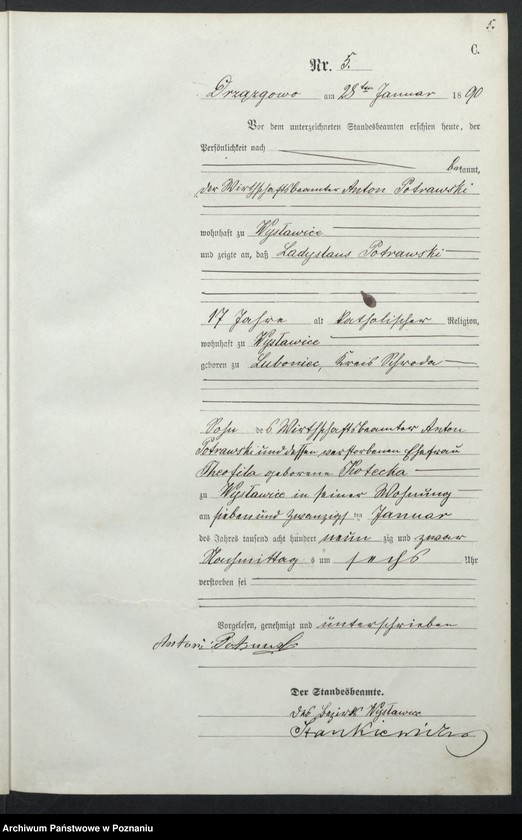 5.
C.
Nr. 5.
Drzązgowo am 28ten Januar 1890
Vor dem unterzeichneten Standesbeamten erschien heute, der
Persönlichkeit nach
bekannt,
der Wirthschaftsbeamter Anton Potrawski
wohnhaft zu Wysławice
und zeigte an, daß Ladyslaus Potrawski
17 Jahre alt katholischer Religion,
wohnhaft zu Wysławice
geboren zu Luboniec, Kreis Schroda
Sohn des Wirthschaftsbeamter Anton
Potrawski und dessen verstorbenen Ehefrau
Theofila geborene
zu Wysławice in seiner Wohnung
am sieben und zwanzigsten Januar
des Jahres tausend acht hundert neunzig und zwar
Nachmittags um sechs Uhr
verstorben sei
Vorgelesen, genehmigt und unterschrieben
Antoni
Der Standesbeamte.
des Bezirks Wysławice
Stankiewicz
Archiwum Państwowe w Poznaniu